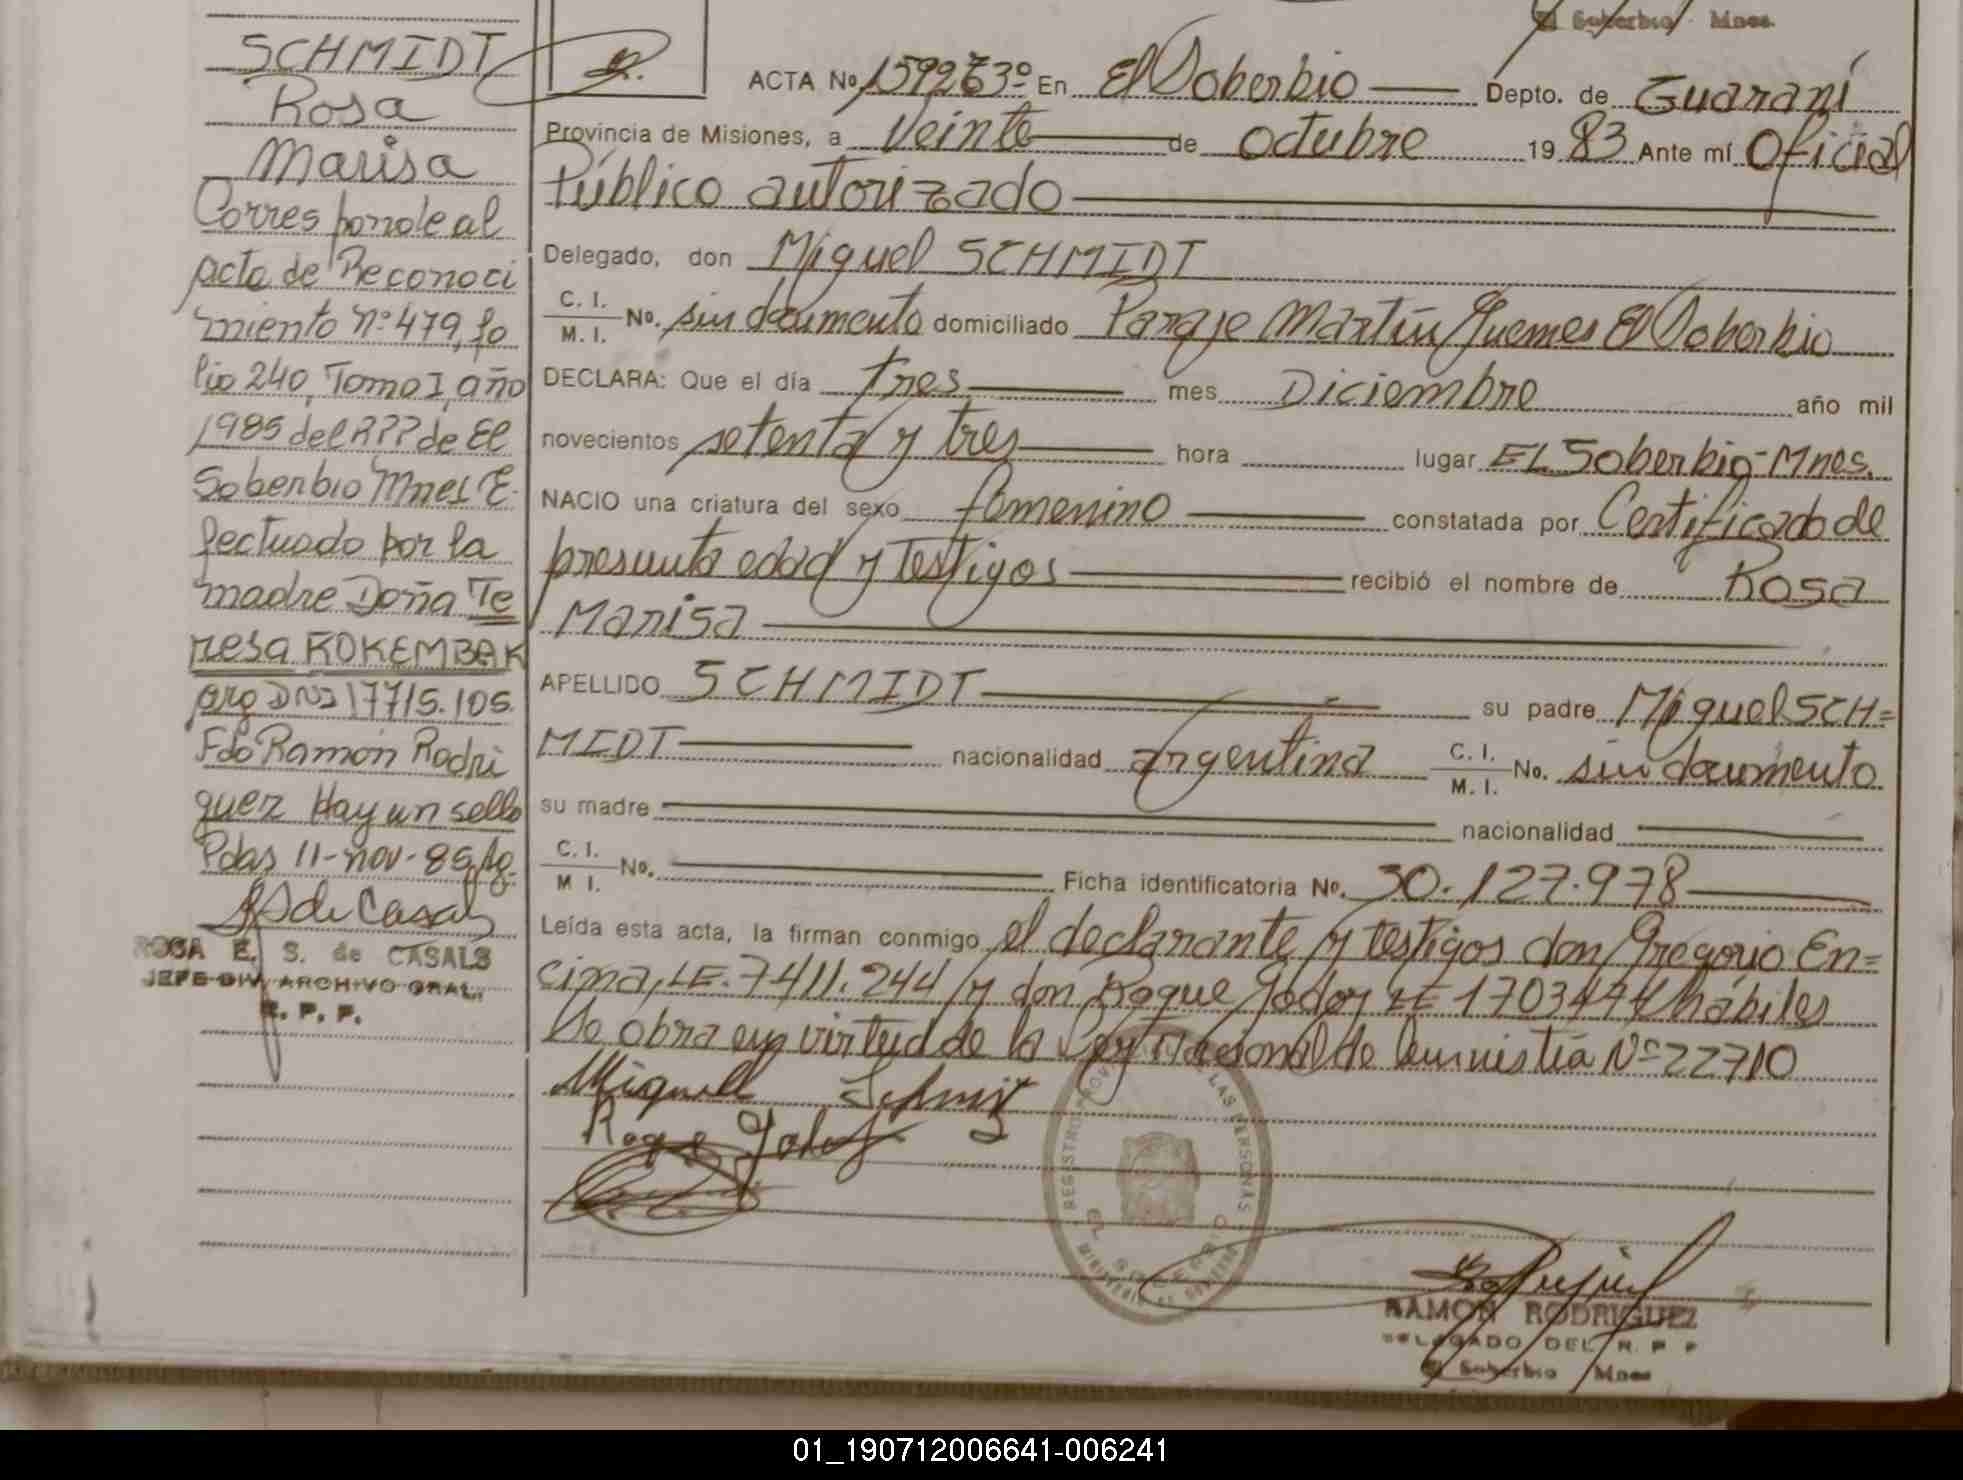 El Soberbio Mnes.
SCHMIDT
Rosa
Marisa
Corresponde al
acta de Reconoci
miento nº 479, fo
lio 240, Tomo I, año
1985 del RPP de El
Soberbio Mnes E
fectuado por la
madre Doña Te
resa ROKEMBAK
arg DNI 17715.105.
Fdo Ramón Rodri
guez Hay un sello
Pdas 11-nov-85
S de Casals
ROSA E. S. de CASALS
JEFE DIV. ARCHIVO GRAL.
R. P. P.
ACTA Nº En El Soberbio Depto. de Guaraní
Provincia de Misiones, a Veinte de octubre 19 83 Ante mí Oficial
Público autorizado
Delegado, don Miguel SCHMIDT
C. I. / M. I. No. sin documento domiciliado Paraje Martín Guemes El Soberbio
DECLARA: Que el día tres mes Diciembre año mil
novecientos setenta y tres hora lugar EL Soberbio-Mnes.
NACIO una criatura del sexo femenino constatada por Certificado de
presunta edad y Testigos recibió el nombre de Rosa
Marisa
APELLIDO SCHMIDT su padre Miguel SCH=
MIDT nacionalidad argentina C. I. / M. I. No. sin documento
su madre nacionalidad
C. I. / M I. No. Ficha identificatoria No. 30.127.978
Leída esta acta, la firman conmigo el declarante y testigos don Gregorio En=
cima, LE. 7411.244 y don Roque Jodor LE hábiles
De obra en virtud de la Ley Nacional de amnistia Nº 22710
Miguel Schmit
Roque
REGISTRO PROV. DE LAS PERSONAS
EL SOBERBIO
MINISTERIO DE GOBIERNO
RAMON RODRIGUEZ
DELEGADO DEL R. P. P
El Soberbio Mnes
01_190712006641-006241